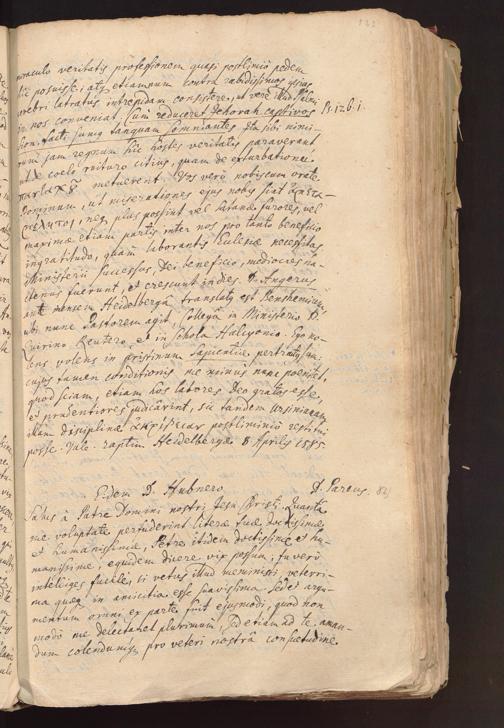 miraculo veritatis professionem quasi postliminio pedem
hic posuisse, atque etiamnum contra rabidissimos ipsius
cerebri latratus intrepidam consistere, ut vere illud Psalmi
in nos conveniat, Cum reduceret Jehovah captivos Ps. 126. 1.
Sion, facti sumus tanquam somniantes. Ita sibi nimi-
rum jam regnum hic hostes veritatis paraverant
ut coelo ruituro citius, quam de exturbatione
metuerent. Vos vero nobiscum orate
Dominum, ut miserationes ejus nobis sint
neque plus possint vel Satanae furores, vel
maximae etiam partis inter nos pro tanto beneficio
ingratitudo, quam laborantis Ecclesiae necessitas.
Ministerii successus, Dei beneficio, mediocres ha-
ctenus fuerunt, et crescunt indies. D. Angerus
ante mensem Heidelberga translatus est Bensheimium,
ubi nunc Pastorem agit, Collega in Ministerio D.
Quirino Reutero, et in Schola Halcyonio. Ego no-
lens volens in pristinum Sapientiae pertractus sum:
cujus tamen conditionis me minus nunc poenitet,
quod sciam, etiam hos labores Deo gratos esse,
et prudentiores judicarint, sic tandem Ursinianam
illam disciplinae postliminio restitui
posse. Vale. raptim Heidelbergae 8 Aprilis 1585.
Eidem D. Hubnero. D. Pareus. 82
Salus à Patre Domini nostri Jesu Christi. Quanta
me voluptate perfuderint literae tuae, doctissimae
et humanissimae, Petre itidem doctissime et hu-
manissime, equidem dicere vix possum; tu vero
intelliges facile, si vetus illud memineris veterri-
ma quaeque in amicitia esse suavissima. Sed et argu-
mentum omni ex parte fuit ejusmodi, quod non
modo me delectaret plurimum, sed etiam ad te aman-
dum colendumque pro veteri nostra consuetudine